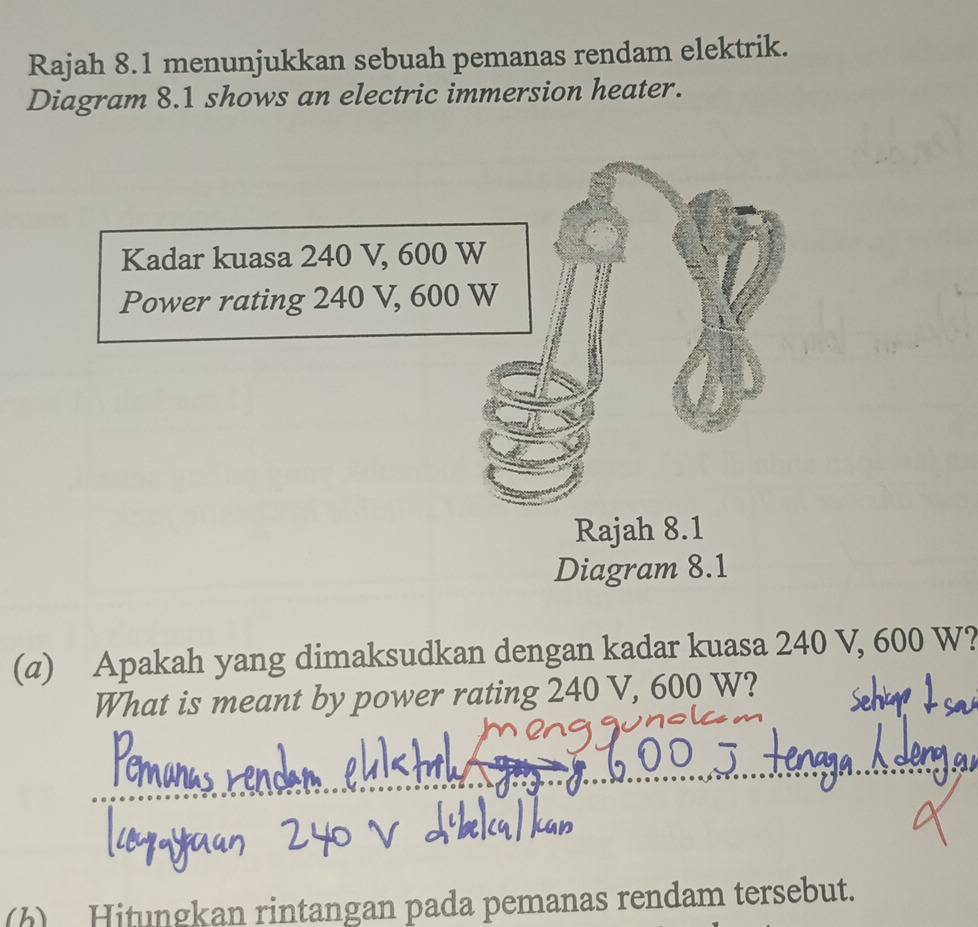 Rajah 8.1 menunjukkan sebuah pemanas rendam elektrik.
Diagram 8.1 shows an electric immersion heater.
Kadar kuasa 240 V, 600 W
Power rating 240 V, 600 W
Rajah 8.1
Diagram 8.1
(a) Apakah yang dimaksudkan dengan kadar kuasa 240 V, 600 W?
What is meant by power rating 240 V, 600 W?
setiap 1 sa
menggunakan
Pemanas rendam elektrik 600 J tenaga dengan
240 V dibekalkan
(b) Hitungkan rintangan pada pemanas rendam tersebut.